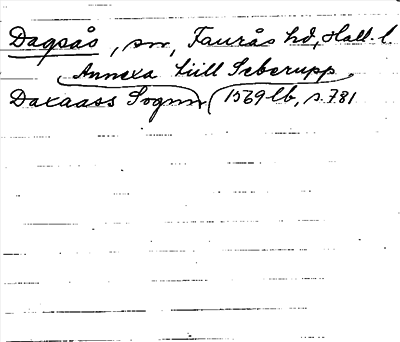 Dagsås, sn, Faurås hd, Hall. l.
Annexa till Seberupp
Daxaass Sognn (1569 lb, s. 781